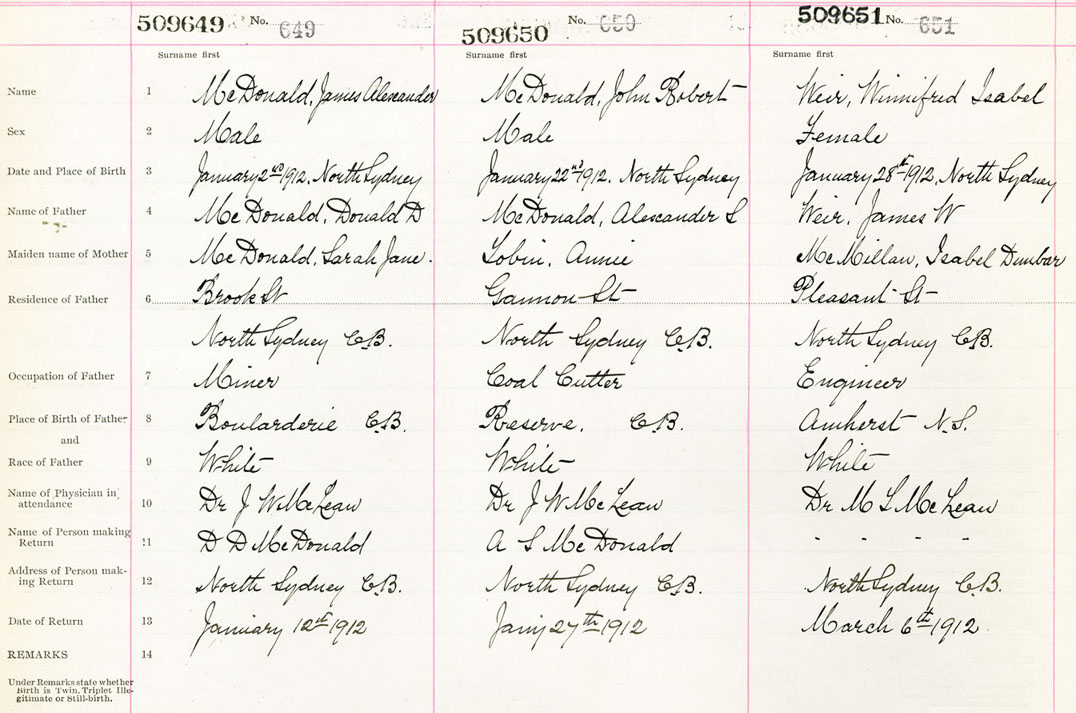 509649 No. 649 509650 No. 650 509651 No. 651
Surname first Surname first Surname first
Name 1 McDonald, James Alexander McDonald, John Robert Weir, Winnifred Isabel
Sex 2 Male Male Female
Date and Place of Birth 3 January 2nd 1912. North Sydney January 22nd 1912. North Sydney January 28th 1912, North Sydney
Name of Father 4 McDonald, Donald D McDonald, Alexander S Weir, James W
Maiden name of Mother 5 McDonald, Sarah Jane. Tobin, Annie McMillan, Isabel Dunbar
Residence of Father 6 Brook St Gannon St Pleasant St
North Sydney C.B. North Sydney C.B. North Sydney C.B.
Occupation of Father 7 Miner Coal Cutter Engineer
Place of Birth of Father 8 Boularderie C.B. Reserve, C.B. Amherst N.S.
and
Race of Father 9 White White White
Name of Physician in
attendance 10 Dr J W McLean Dr J W McLean Dr M S McLean
Name of Person making
Return 11 D D McDonald A S McDonald " " " "
Address of Person mak-
ing Return 12 North Sydney C.B. North Sydney C.B. North Sydney C.B.
Date of Return 13 January 12th 1912 Jany 27th 1912 March 6th 1912
REMARKS 14
Under Remarks state whether
Birth is Twin, Triplet, Ille-
gitimate or Still-birth.